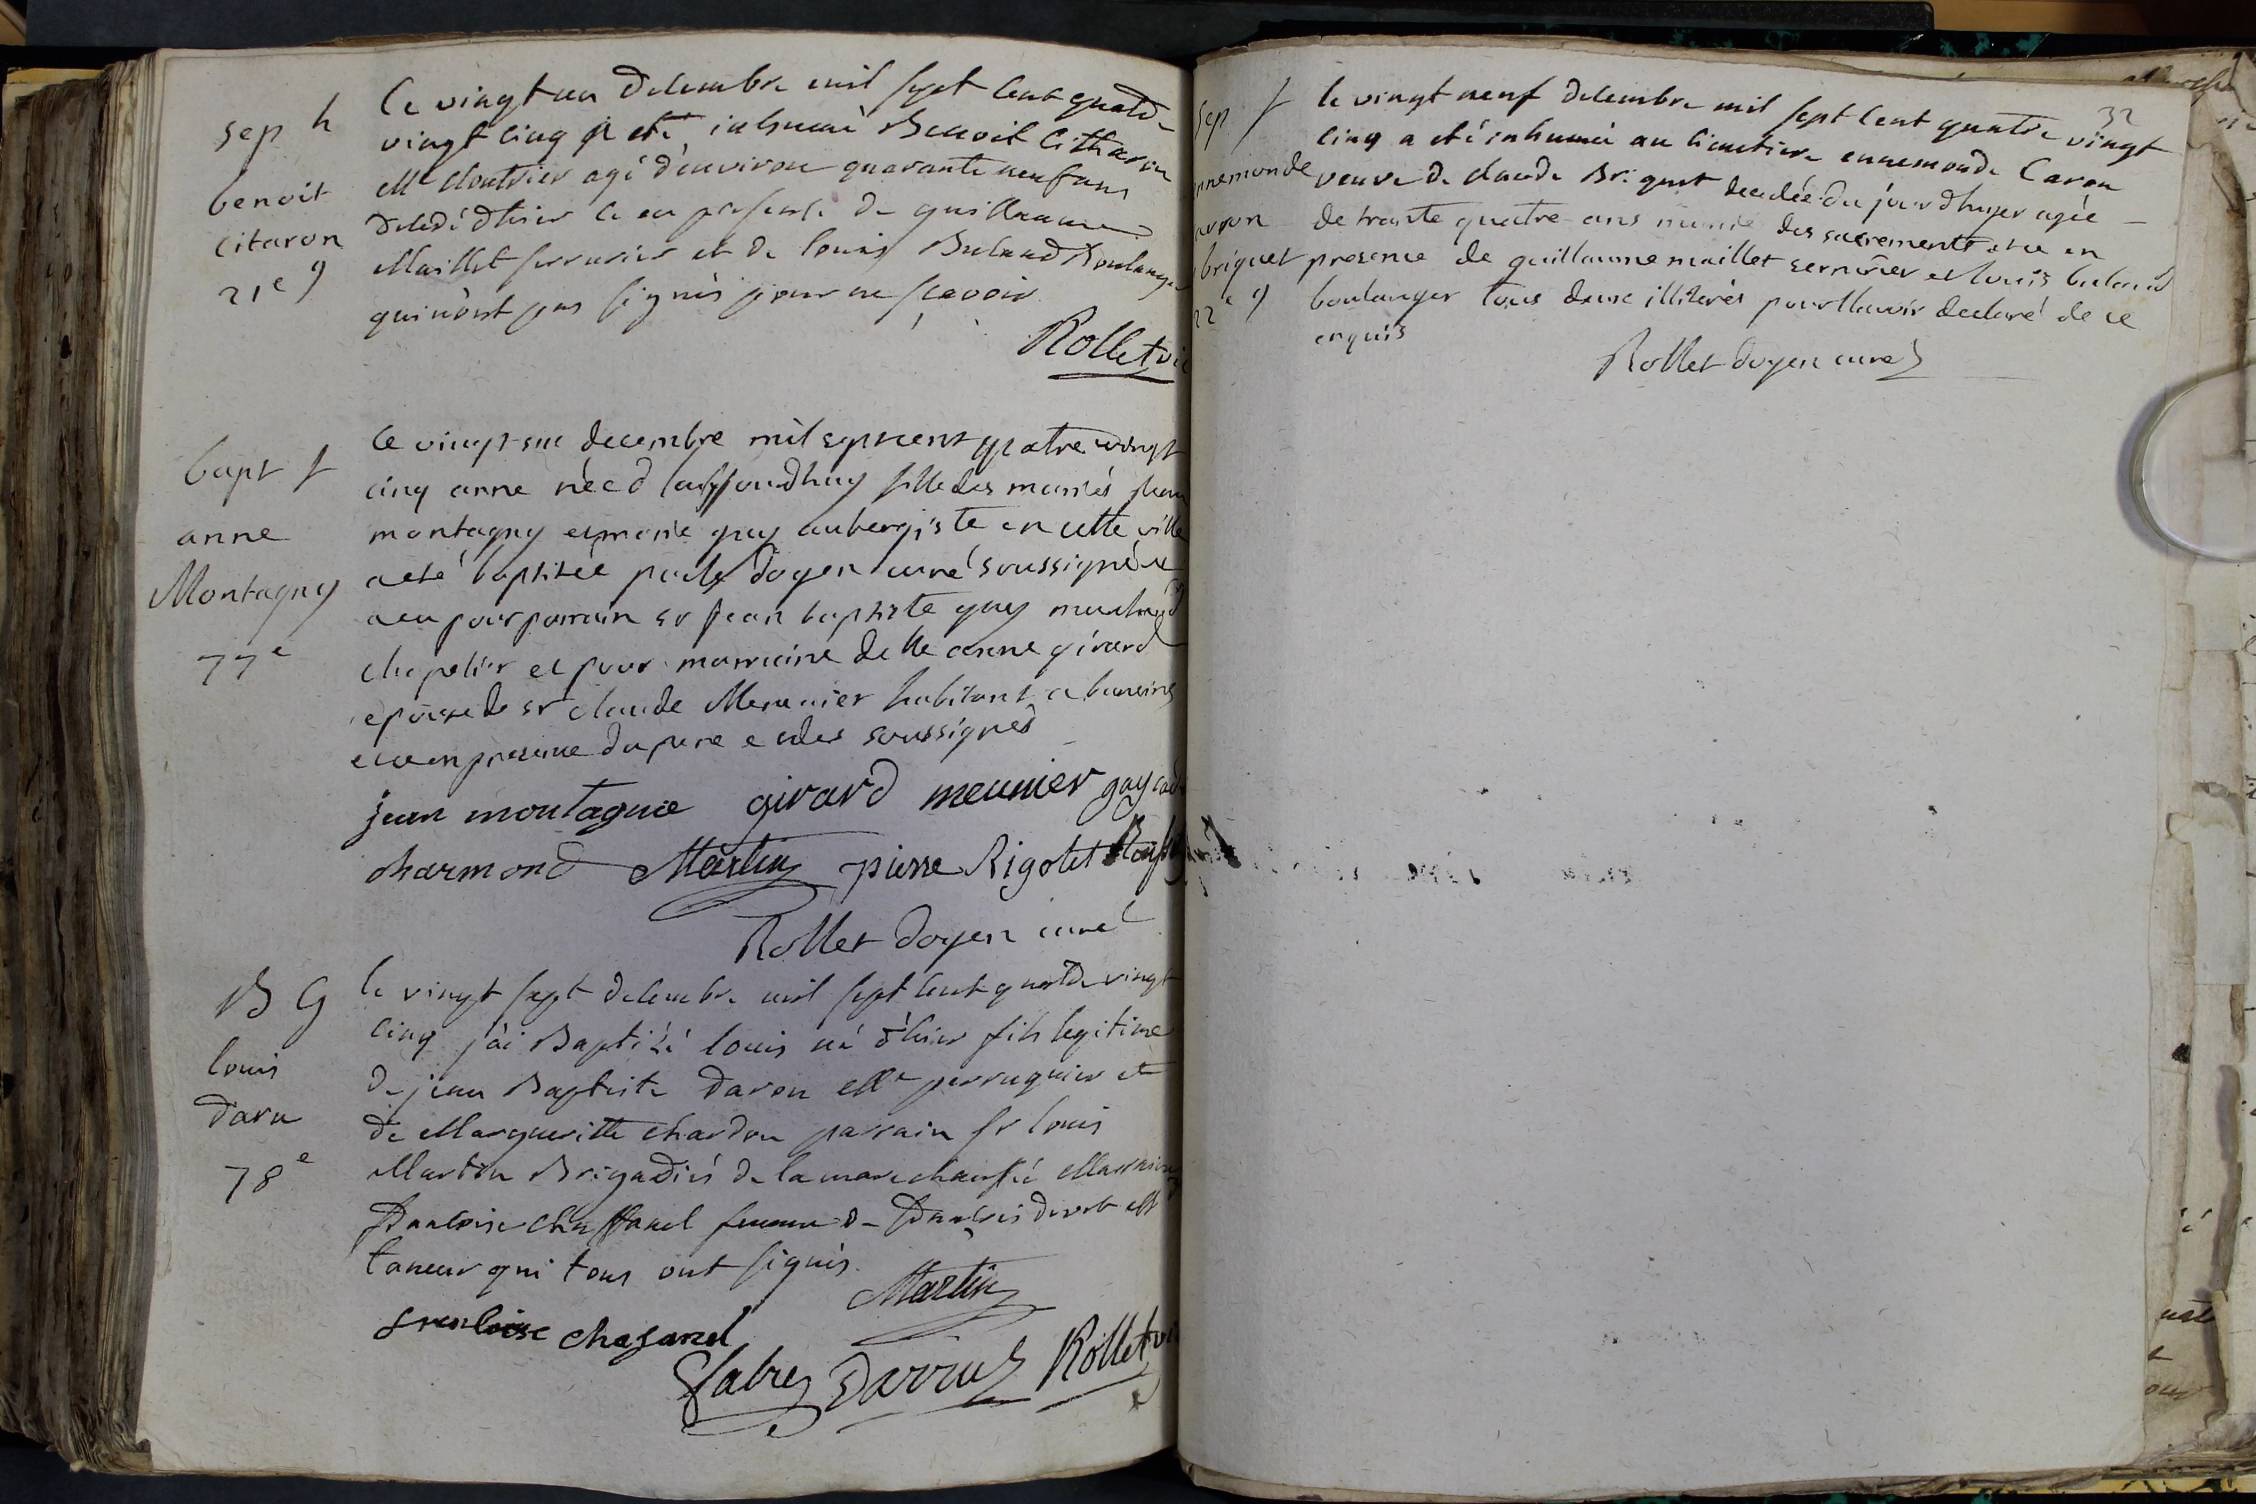 sep h
benoit
citaron
21e g
Le vingt un decembre mil sept cent quatre
vingt cinq a eté inhumé Benoit Cittaron
Me cloutrier agé d'environ quarante neuf ans
decedé d'hier ce en presence de guillaume
Maillet serrurier et de louis Buland Boulanger
qui n'ont pas signés pour ne scavoir
Rollet vic
bapt f
anne
Montagny
77e
Le vingt six decembre mil sept cent quatre vingt
cinq anne née d aujourdhuy fille des mariés jean
montagny et marie guy aubergiste en cette ville
a eté baptisée par le doyen curé soussigné
a eu pour parrain sr jean baptiste guy marchand
chapelier et pour marraine delle anne girard
epouse de sr claude Meunier habitant a
et ce en presence du pere et des soussignés
jean montagnie girard meunier gay
charmond Martin pierre Rigolet
Rollet doyen curé
B G
louis
daru
78e
le vingt sept decembre mil sept cent quatre vingt
cinq j'ai Baptizé louis né d'hier fils legitime
de jean Baptiste daron Me perruquier et
de Margueritte chardon parrain sr louis
Martin Brigadié de la marechaussé Marraine
francoise chaffanel femme de francois
taneur qui tous ont signés.
Martin
francoise chafanel
fabre Darru Rollet vic
32
sep f
ennemonde
carron
briguet
22e g
le vingt neuf decembre mil sept cent quatre vingt
cinq a eté inhumée au cimetiere ennemonde Caron
veuve de claude Briguet decedée du jour d'hyer agée
de trante quatre ans munie des sacrements et ce en
presence de guillaume maillet serrurier et louis buland
boulanger tous deux illiterés pour l'avoir declaré de ce
enquis
Rollet doyen curé